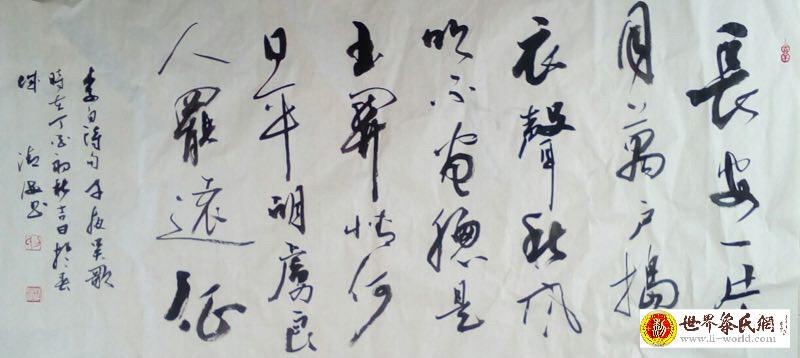 長安一片
月萬户搗
衣聲秋風
吹不盡總是
玉關情何
日平胡虜良
人罷遠征
李白詩句子夜吴歌
時在丁酉初秋吉日於春
城 書
世界蔡氏網
www.li-world.com